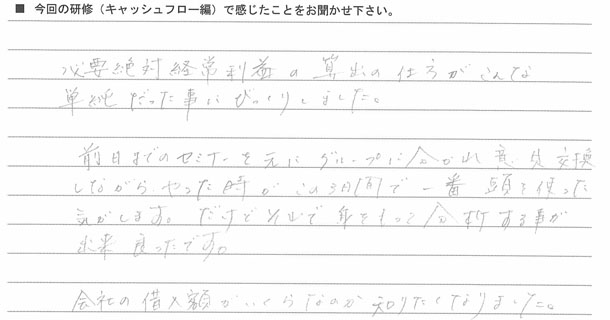 ■ 今回の研修（キャッシュフロー編）で感じたことをお聞かせ下さい。
必要絶対経常利益の算出の仕方がこんな
単純だった事にびっくりしました。
前日までのセミナーを元にグループに分かれ意見交換
しながらやった時がこの3日間で一番頭を使った
気がします。だけどそれで身をもって分析する事が
出来良ったです。
会社の借入額がいくらなのか知りたくなりました。